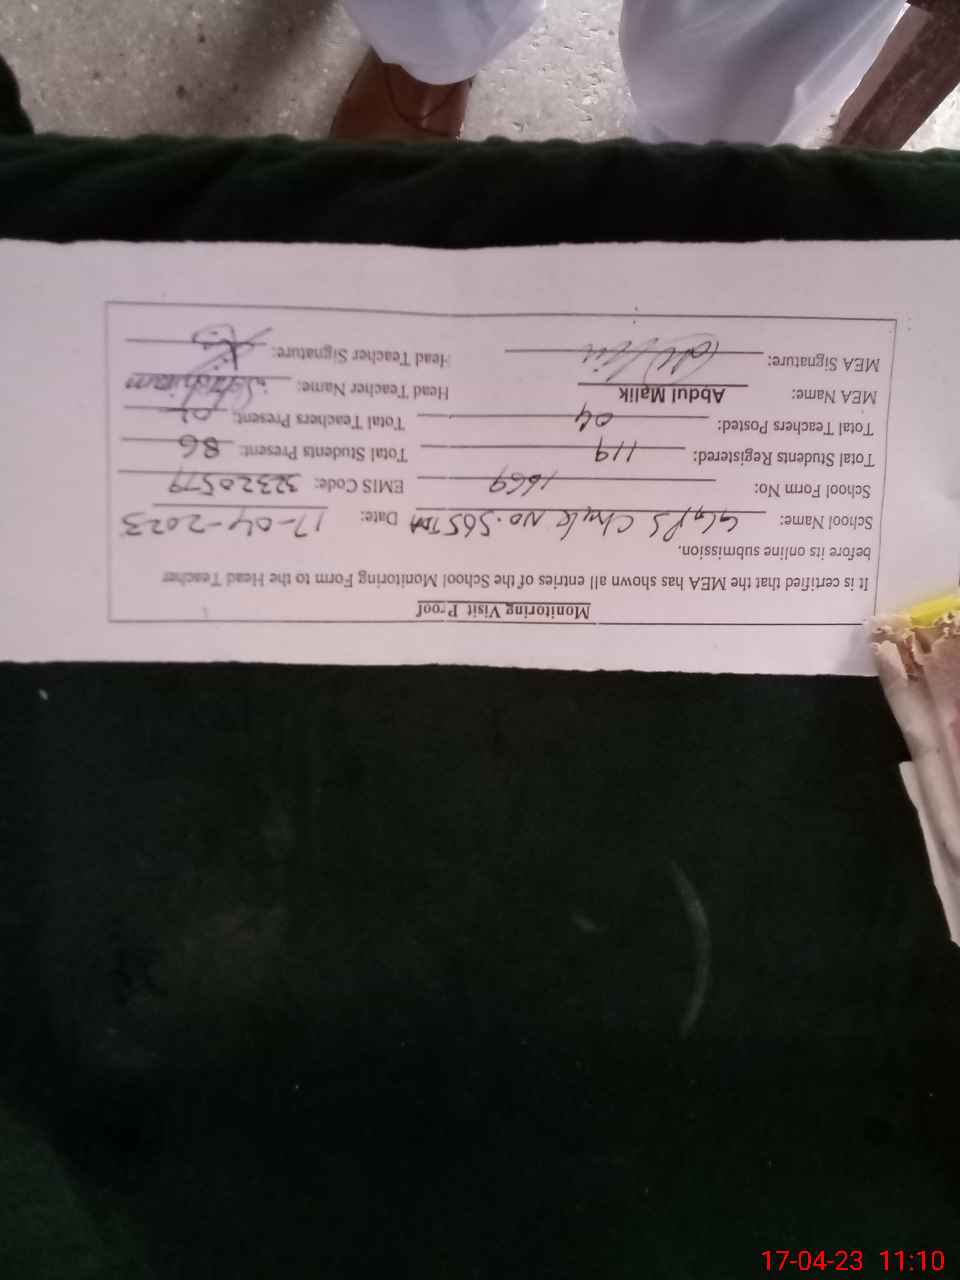 Monitoring Visit Proof
It is certified that the MEA has shown all entries of the School Monitoring Form to the Head Teacher
before its online submission.
School Name: GGPS Chak No. 565 TDA Date: 17-04-2023
School Form No: 1669 EMIS Code: 32320579
Total Students Registered: 119 Total Students Present: 86
Total Teachers Posted: 04 Total Teachers Present:
MEA Name: Abdul Malik Head Teacher Name:
MEA Signature: Head Teacher Signature:
17-04-23 11:10